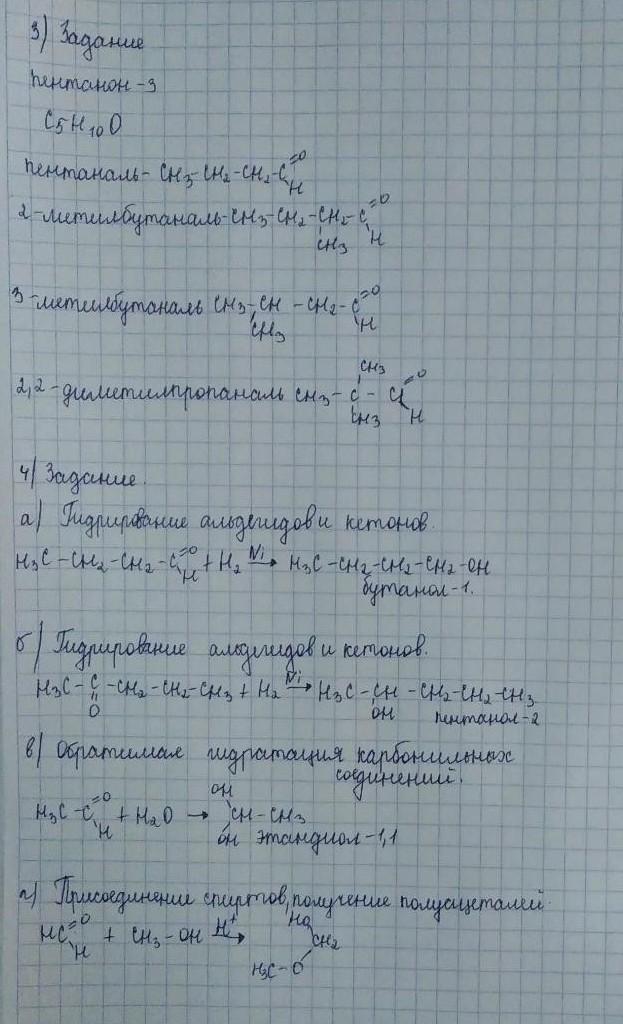 3) Задание
пентанон-3
C5H10O
пентаналь- CH3-CH2-CH2-C=O
H
2-метилбутаналь-CH3-CH2-CH2-C=O
CH3 H
3-метилбутаналь CH3-CH-CH2-C=O
CH3 H
CH3
2,2-диметилпропаналь CH3-C-C=O
CH3 H
4) Задание.
а) Гидрирование альдегидов и кетонов.
H3C-CH2-CH2-C=O + H2 Ni→ H3C-CH2-CH2-CH2-OH
H бутанол-1.
б) Гидрирование альдегидов и кетонов.
H3C-C-CH2-CH2-CH3 + H2 Ni→ H3C-CH-CH2-CH2-CH3
O OH пентанол-2
в) Обратимая гидратация карбонильных
соединений.
OH
H3C-C=O + H2O → CH-CH3
H OH этандиол-1,1
г) Присоединение спиртов, получение полуацеталей.
HO
HC=O + CH3-OH H+→ CH2
H H3C-O